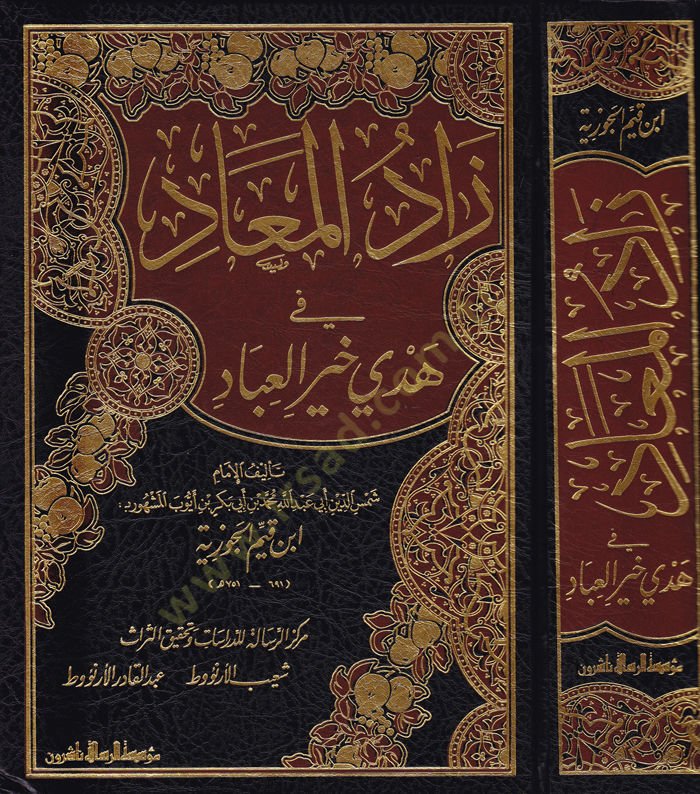 زَادُ المَعَادِ
في
هَدْيِ خَيْرِ العِبَادِ
تأليف الإمام
شمس الدين أبي عبد الله محمد بن أبي بكر بن أيوب المشهور بـ:
ابن قيّم الجوزية
(٦٩١ — ٧٥١ هـ)
مركز الرسالة للدراسات وتحقيق التراث
شعيب الأرنؤوط عبد القادر الأرنؤوط
مؤسسة الرسالة ناشرون
ابن قيم الجوزية
زاد المعاد
في
هدي خير العباد
مؤسسة الرسالة ناشرون